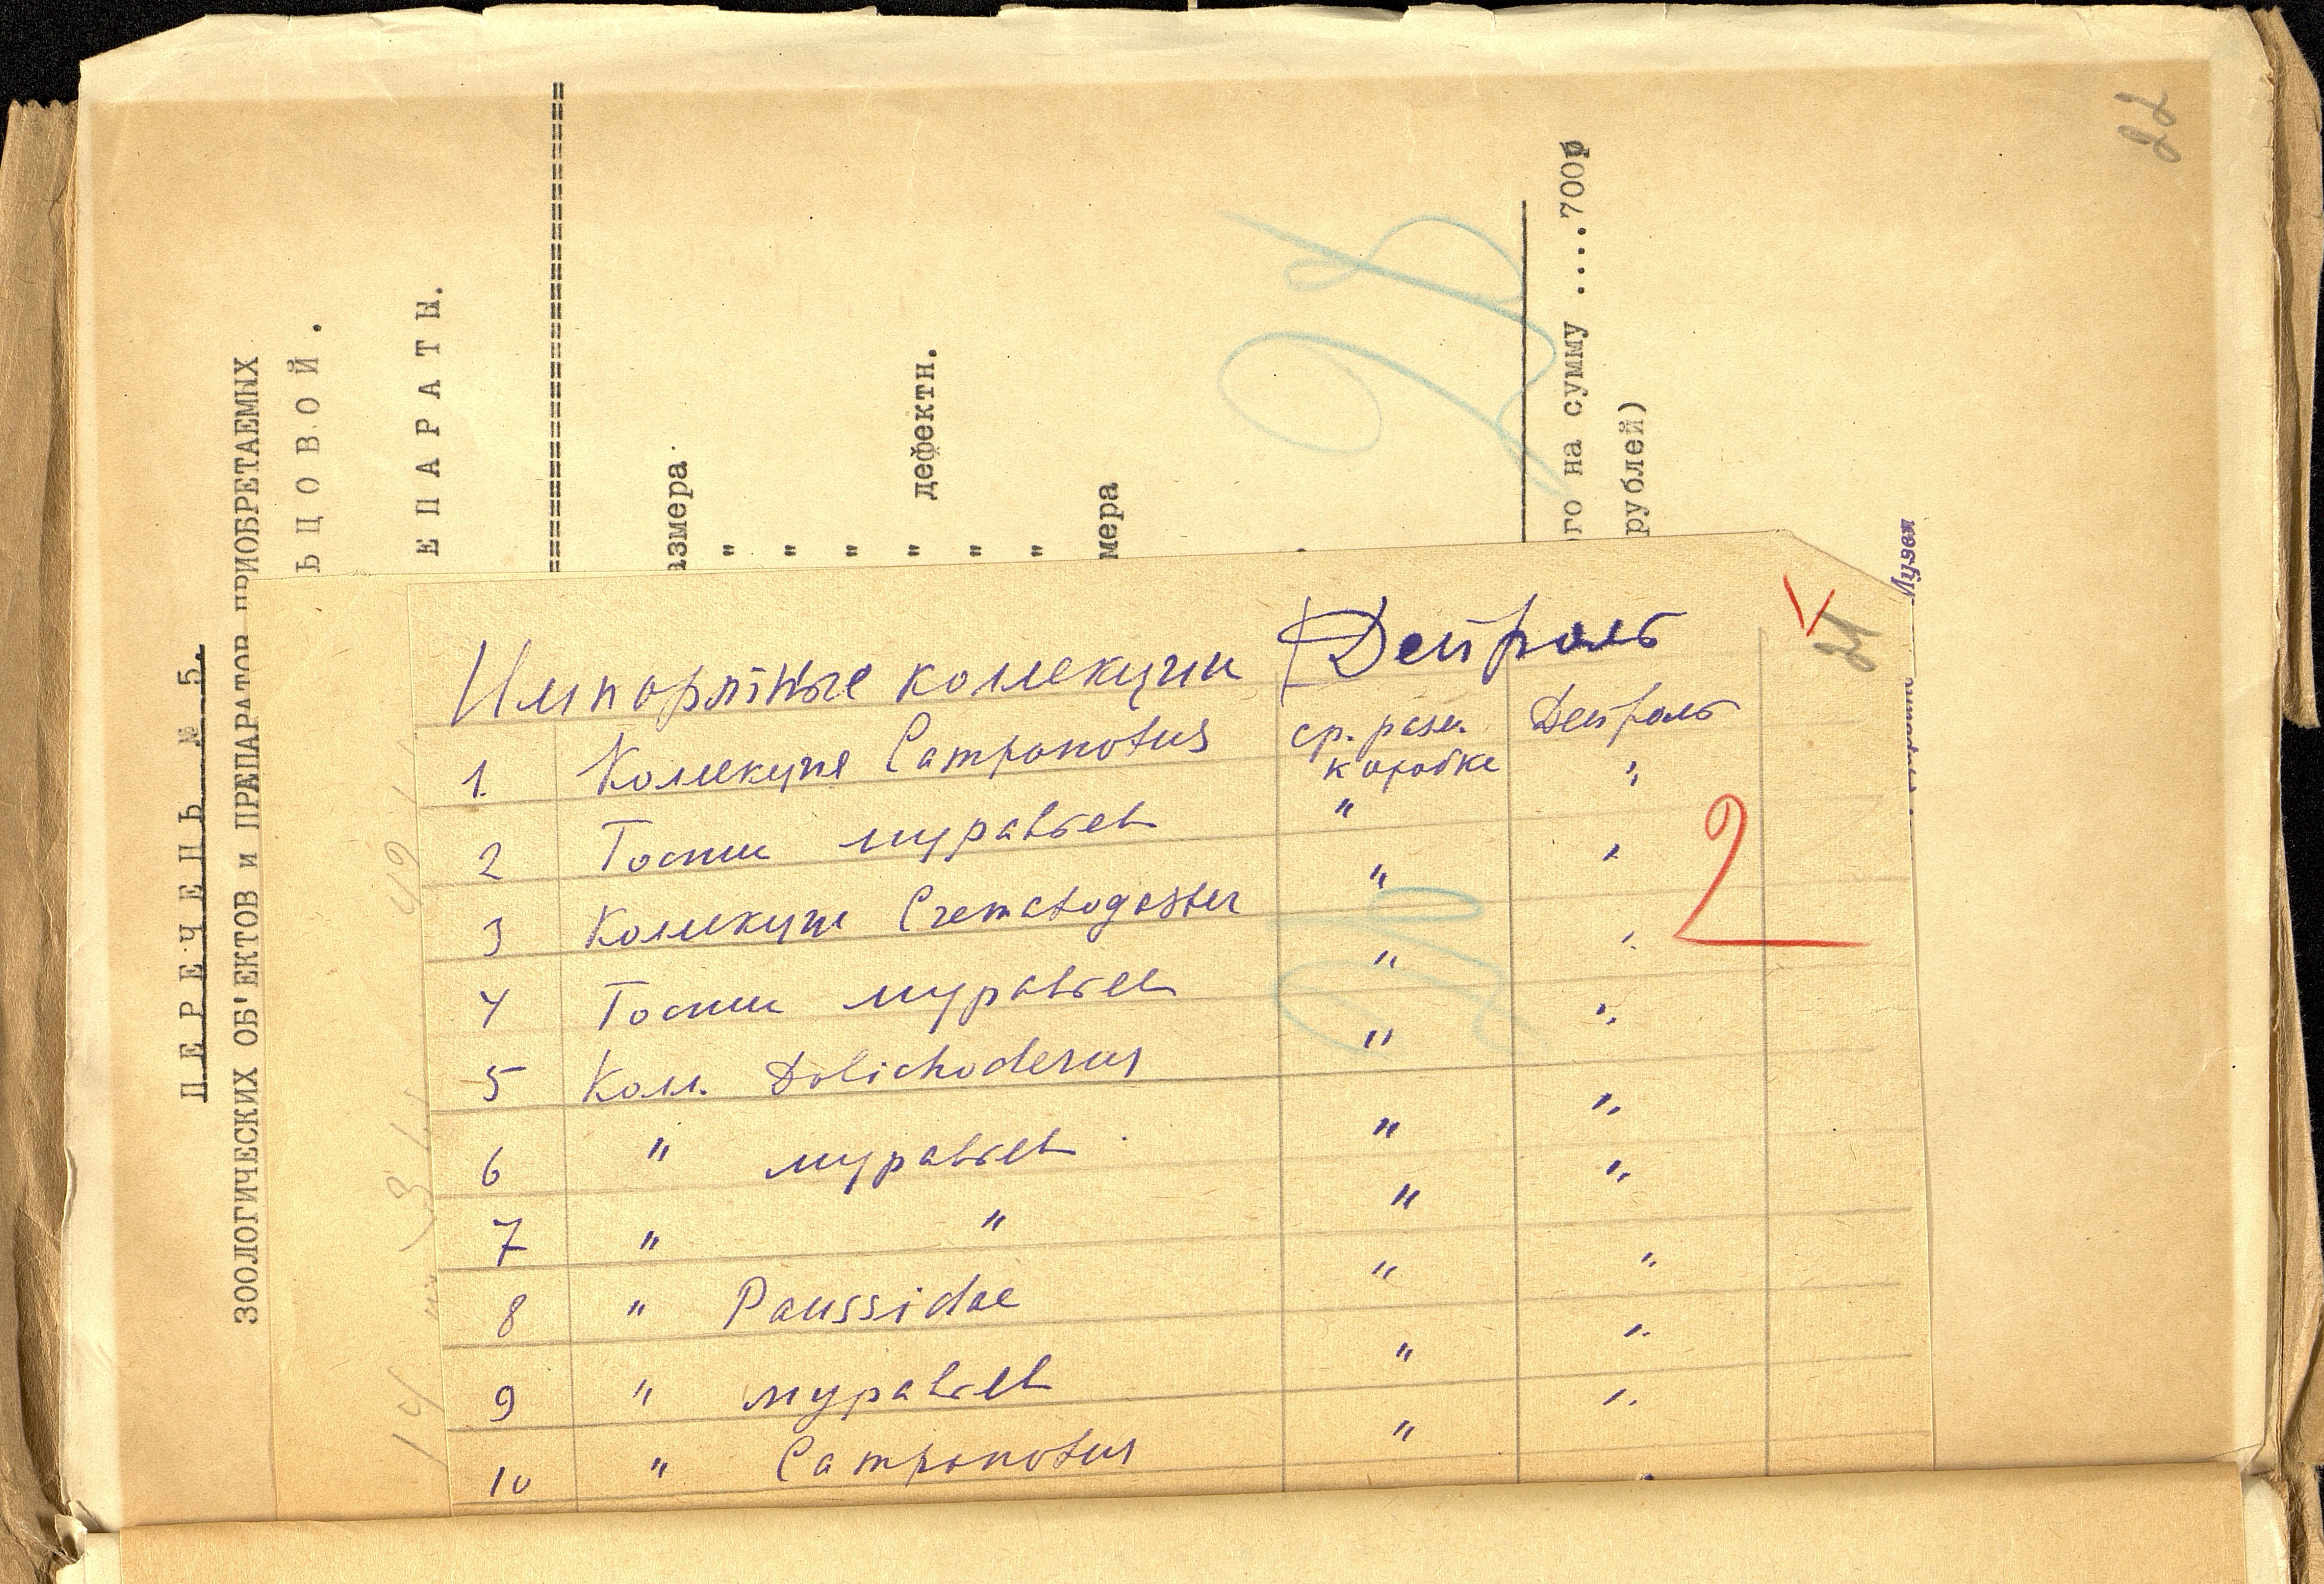 22
ПЕРЕЧЕНЬ № 5.
ЗООЛОГИЧЕСКИХ ОБ'ЕКТОВ и ПРЕПАРАТОВ ПРИОБРЕТАЕМЫХ
ЬЦОВОЙ.
ЕПАРАТЫ.
==========================
азмера
"
"
"
" дефектн.
"
"
мера
го на сумму .....700р
рублей)
Музея
Импортные коллекции Дейроль
21
1. Коллекция Camponotus ср. разм. коробка Дейроль
"
2 Гости муравьев " "
3 Коллекция Crematogaster " "
4 Гости муравьев " "
5 Колл. Dolichoderus " "
6 " муравьев " "
7 " " " "
8 " Paussidae " "
9 " муравьев " "
10 " Camponotus " "
2